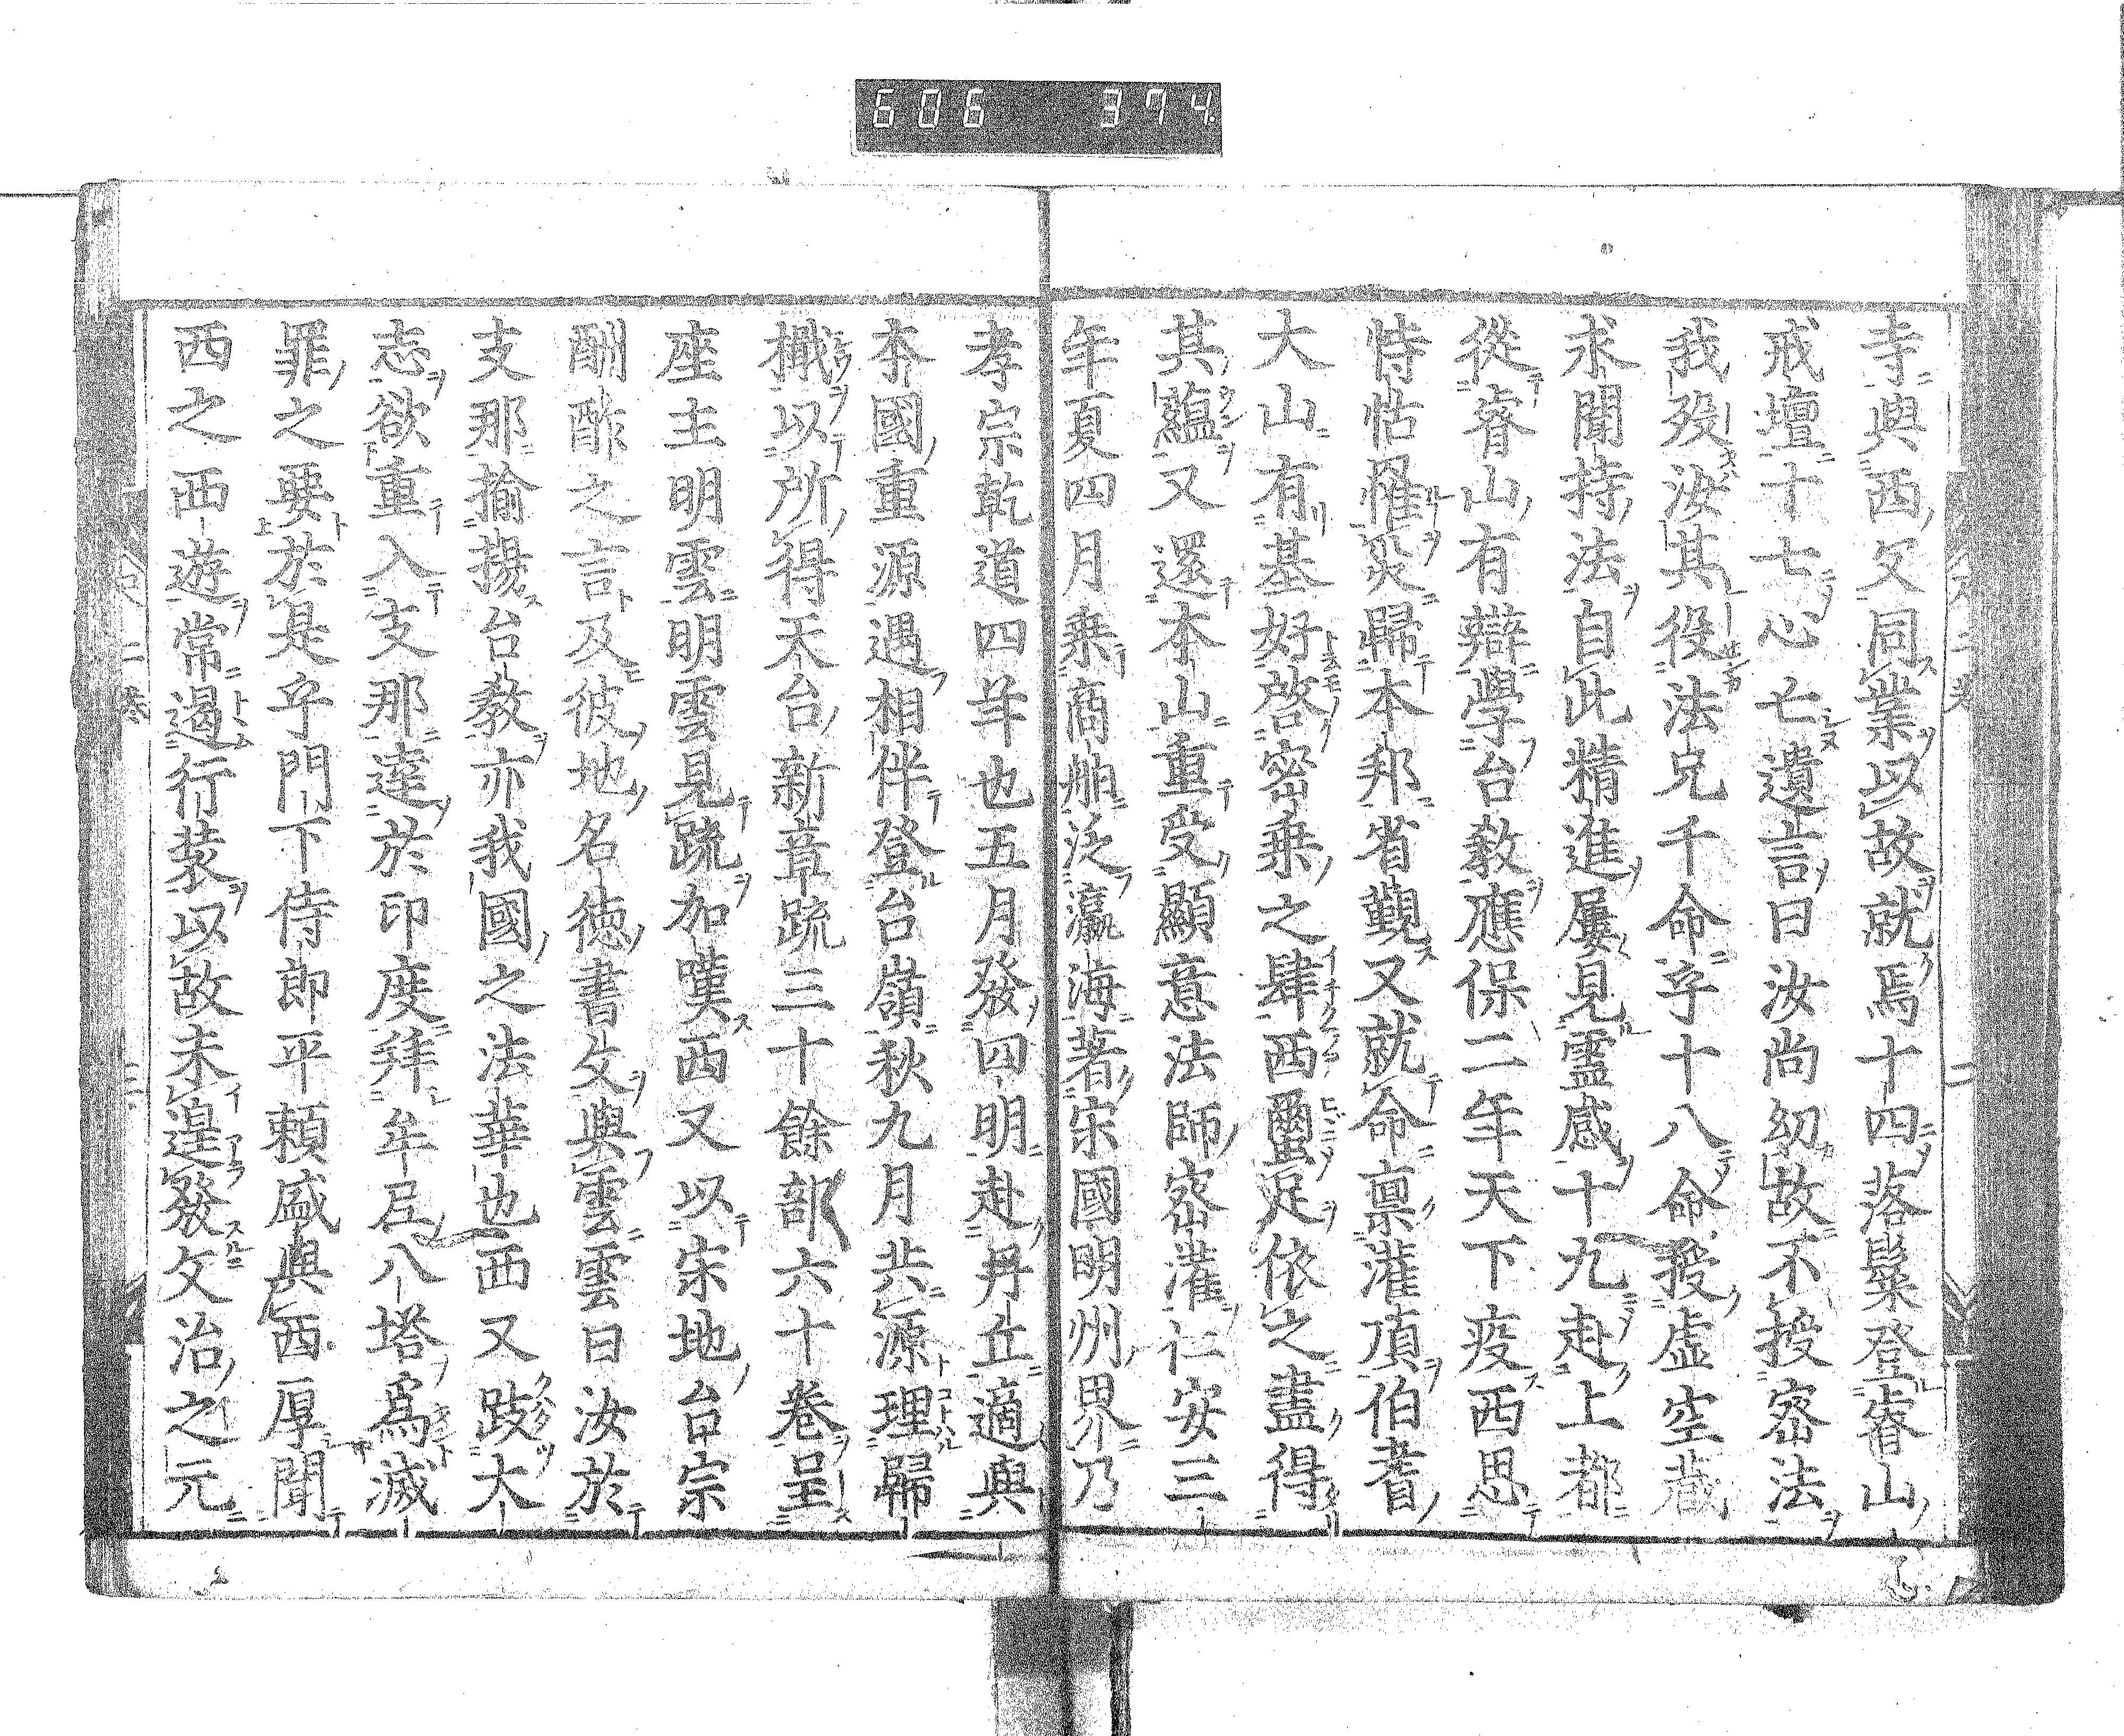 606 374
寺與西父同業以故就焉十四落鬂登睿山
戒壇十七心亡遺言曰汝尚幼故不授密法
我歿汝其從法兄千命乎十八命授虛空藏
求聞持法自此精進屢見靈感十九赴上都
從睿山有辯學台教應保二年天下疫西思
恃怙罹災歸本邦省觀又就命禀灌頂伯耆
大山有基好啓密乘之肆西蠒足依之盡得
其蘊又還本山重受顯意法師密灌仁安三
年夏四月乘商舶泛瀛海著宋國明州界乃
孝宗乾道四年也五月發四明赴丹丘適與
本國重源遇相伴登台嶺秋九月共源理歸
檝以所得天台新章疏三十餘部六十卷呈
座主明雲明雲見疏加嘆西又以宋地台宗
酬酢之言及彼地名德書文與雲雲曰汝於
支那揄揚台教亦我國之法華也西又跂大
志欲重入支那達於印度拜牟尼八塔爲滅
罪之要於是乎門下侍郎平賴盛與西厚聞
西之西遊常遏行裝以故未遑發文治之元
二卷